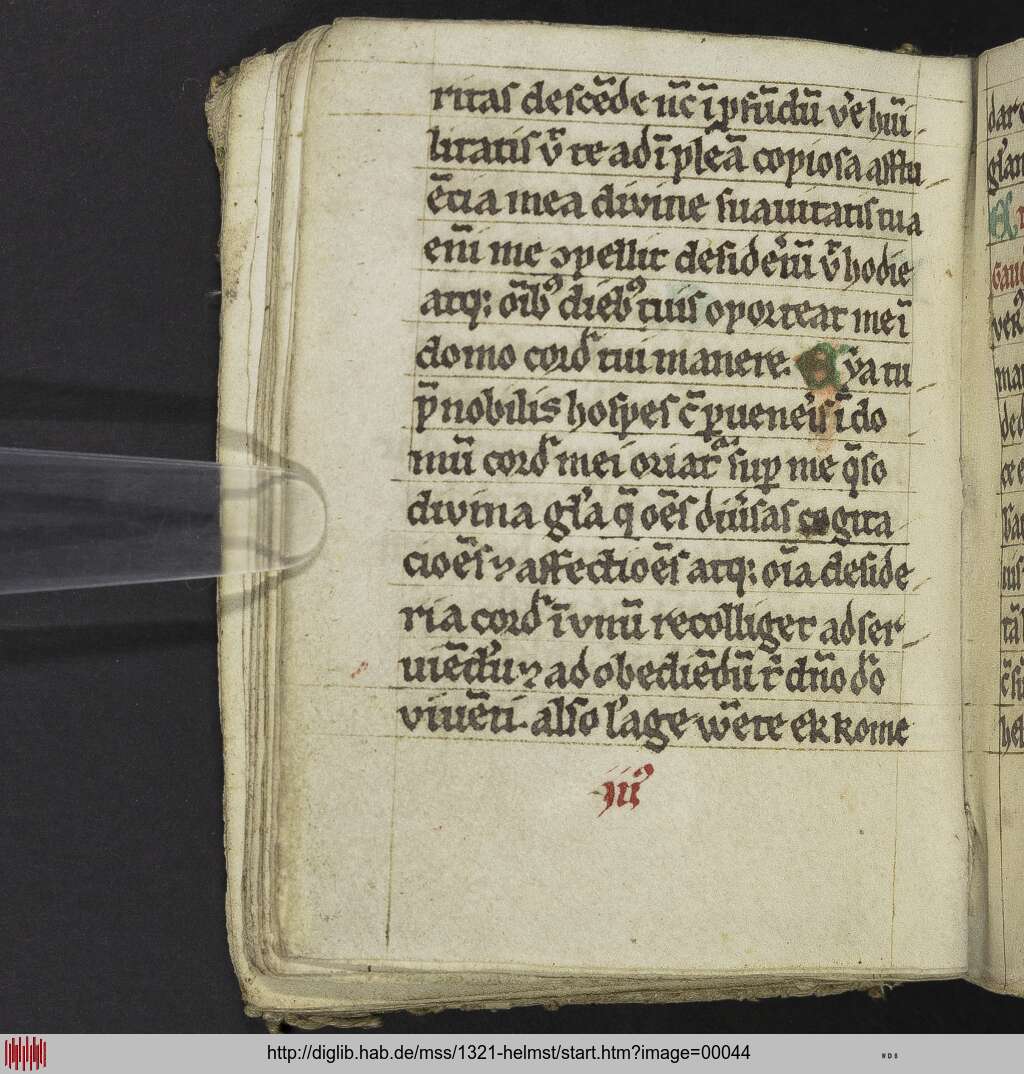 ritas descēde nc̄ ī ꝓfūdū vˀe hūi
litatis v̄ te ad īpleā copiosa afflu
ētia mea divine suauitatis tua
eni̅ me ꝯpellit desiderˀiū v̄ hodie
atqꝫ oībꝰ diebꝰ tuis oporteat me ī
domo cordˀ tui manere. Eya tu
p̄nobilis hospes c̄ ꝑueneˀis ī do
mū cordˀ mei oriatˀ suꝑ me q̄so
divina glˀa q̄ oēs diūˀsas cogita
cioēs ⁊ affectioēs atqꝫ oīa deside
ria cordˀ ī vnū recolliget ad ser
uiēdˀu ⁊ ad obediēdū t̄ dn̄o dˀo
viuēti. also lˀage wēte ek kome
iijꝰ
dar
http://diglib.hab.de/mss/1321-helmst/start.htm?image=00044